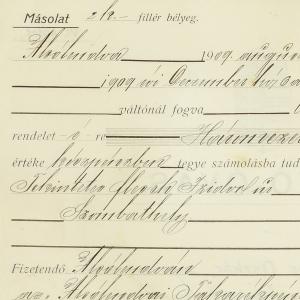 Másolat 2 k. – fillér bélyeg.
Alsólendva 1909 augus
1909 évi December hó
váltónál fogva
rendelet – é – re Háromezer
értéke készpénzben tegye számolásba tud
Tekintetes Izidor úr
Szombathely
Fizetendő Alsólendván
az Alsólendvai Takarékpénz